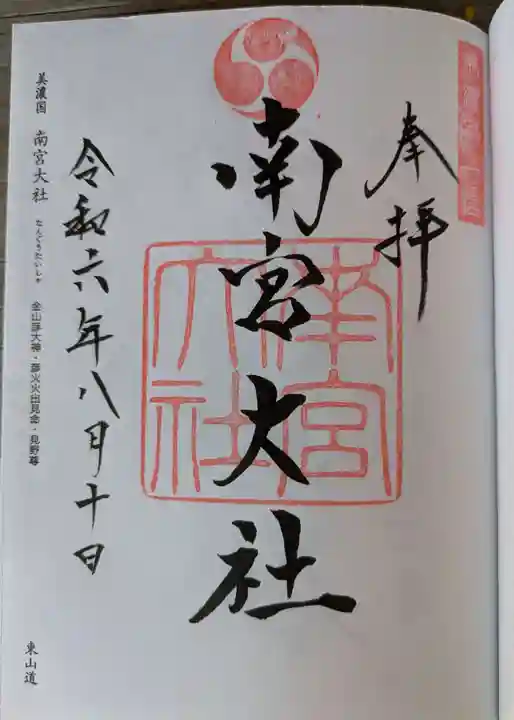 奉拝
南宮大社
南宮
大社
令和六年八月十日
美濃国 南宮大社 なんぐうたいしゃ 金山彦大神・彦火火出見命・見野尊
東山道